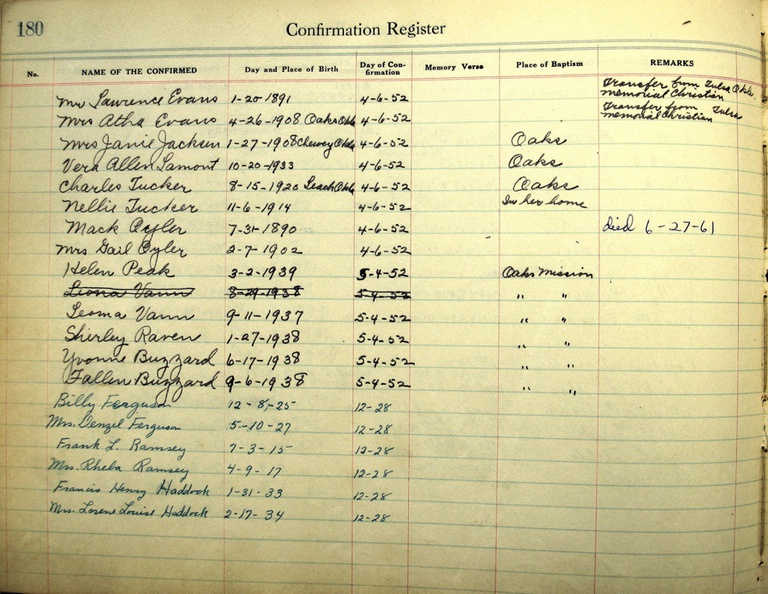 180
Confirmation Register
No. NAME OF THE CONFIRMED Day and Place of Birth Day of Con-firmation Memory Verse Place of Baptism REMARKS
Mr Lawrence Evans 1-20-1891 4-6-52 Transfer from Tulsa Okla. Memorial Christian
Mrs Atha Evans 4-26-1908 Oaks Okla 4-6-52 Transfer from Tulsa Memorial Christian
Mrs Janie Jackson 1-27-1908 Chewey Okla 4-6-52 Oaks
Vera Allen Lamont 10-20-1933 4-6-52 Oaks
Charles Tucker 8-15-1920 Leach Okla 4-6-52 Oaks
Nellie Tucker 11-6-1914 4-6-52 In her home
Mack Oyler 7-31-1890 4-6-52 died 6-27-61
Mrs Gail Oyler 2-7-1902 4-6-52
Helen Peak 3-2-1939 5-4-52 Oaks Mission
Leona Vann 8-29-1938 5-4-52 " "
Leoma Vann 9-11-1937 5-4-52 " "
Shirley Raven 1-27-1938 5-4-52 " "
Yvonne Buzzard 6-17-1938 5-4-52 " "
Fallen Buzzard 9-6-1938 5-4-52 " "
Billy Ferguson 12-8-25 12-28
Mrs. Denzel Ferguson 5-10-27 12-28
Frank L. Ramsey 7-3-15 12-28
Mrs. Rheba Ramsey 4-9-17 12-28
Francis Henry Haddock 1-31-33 12-28
Mrs. Lorene Louise Haddock 2-17-34 12-28